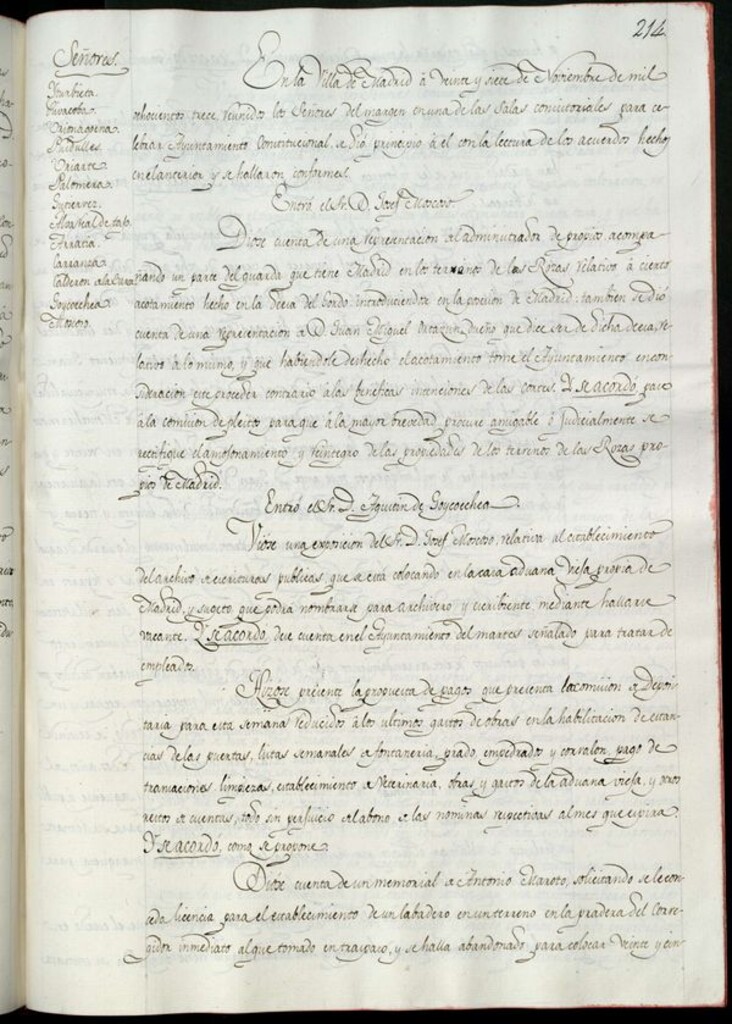 214
Señores.
Yturbieta.
Uriarte.
Palomera.
Gutierrez.
Arratia.
Carranza.
Goycoechea
Moscoso
En la Villa de Madrid à veinte y siete de Noviembre de mil
ochocientos trece, reunidos los Señores del margen en una de las Salas consistoriales para ce-
lebrar Ayuntamiento Constitucional, se dió principio à él con la lectura de los acuerdos hechos
en el anterior y se hallaron conformes.
Entró el Sr. D. Josef Moscoso.
Diose cuenta de una representacion del administrador de propios acompa-
ñando un parte del guarda que tiene Madrid en los terminos de las Rozas relativo à cierto
acotamiento hecho en la Deesa del Gordo introduciendose en la porcion de Madrid: tambien se dió
cuenta de una representacion de D. Juan Miguel dueño que dice ser de dicha deesa, re-
lativo à lo mismo, y que habiendole deshecho el acotamiento tome el Ayuntamiento en con-
sideracion este proceder contrario à las beneficas intenciones de las cortes. Y se acordó, pase
à la comision de pleitos para que à la mayor brevedad, procure amigable ò judicialmente se
rectifique el amojonamiento y reintegro de las propiedades de los terrenos de las Rozas pro-
pios de Madrid.
Entró el Sr. D. Agustin de Goycoechea.
Viose una exposicion del Sr. D. Josef Moscoso, relativa al establecimiento
del archivo de escrituras publicas, que se está colocando en la casa aduana vieja propia de
Madrid, y sugeto que podrá nombrarse para archivero y escribiente mediante hallarse
vacante. Y se acordó, dese cuenta en el Ayuntamiento del martes señalado para tratar de
empleados.
Hizose presente la propuesta de pagos que presenta la comision de Deposi-
taria para esta semana reducidos à los ultimos gastos de obras en la habilitacion de estan-
cias de las puertas, listas semanales de fontaneria, prado, empedrados y corralon, pago de
transaciones, limpiezas, establecimiento de Veterinaria, obras y gastos de la aduana vieja, y otros
restos de cuentas, todo sin perjuicio del abono de las nominas respectivas al mes que espira.
Y se acordó, como se propone.
Diose cuenta de un memorial de Antonio Maroto, solicitando se le con-
ceda licencia para el establecimiento de un labadero en un terreno en la pradera del Corre-
gidor inmediato al que tomado en traspaso, y se halla abandonado para colocar veinte y cin-